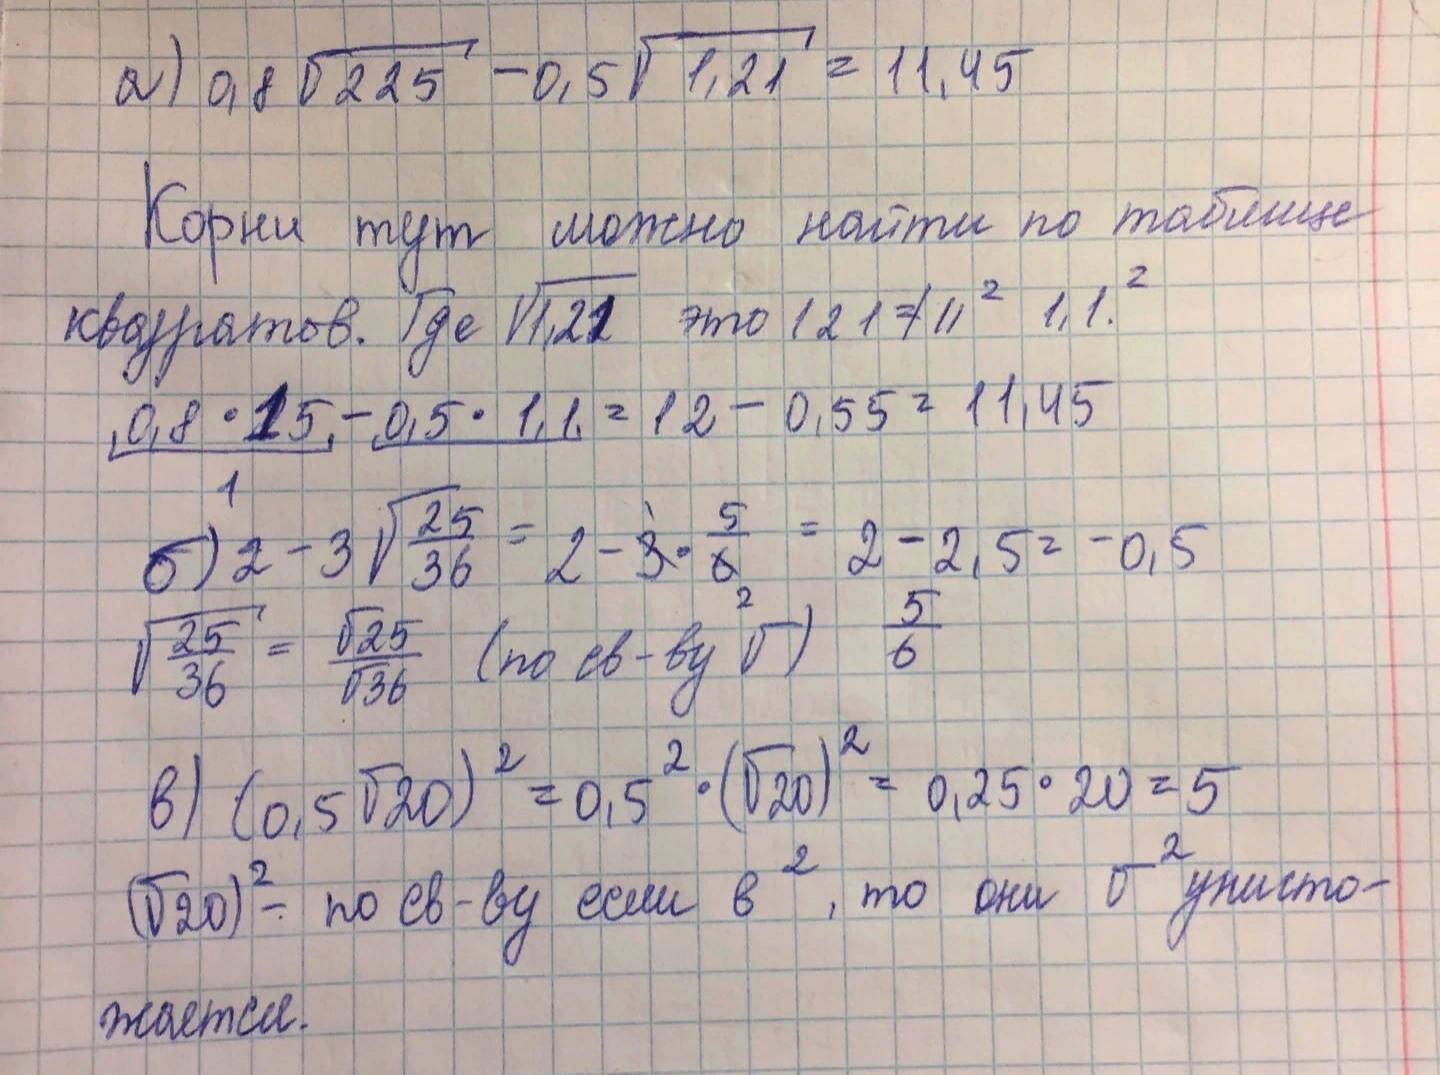 а) 0,8√225 - 0,5√1,21 = 11,45
Корни тут можно найти по таблице
квадратов. Где √1,21 это 121 ≠ 11² 1,1.²
0,8 · 15 - 0,5 · 1,1 = 12 - 0,55 = 11,45
1
б) 2 - 3√25/36 = 2 - 3 · 5/6 = 2 - 2,5 = -0,5
1
2
√25/36 = √25/√36 (по св-ву √) 5/6
в) (0,5√20)² = 0,5² · (√20)² = 0,25 · 20 = 5
(√20)² - по св-ву если в ², то они √² унисто-
жается.